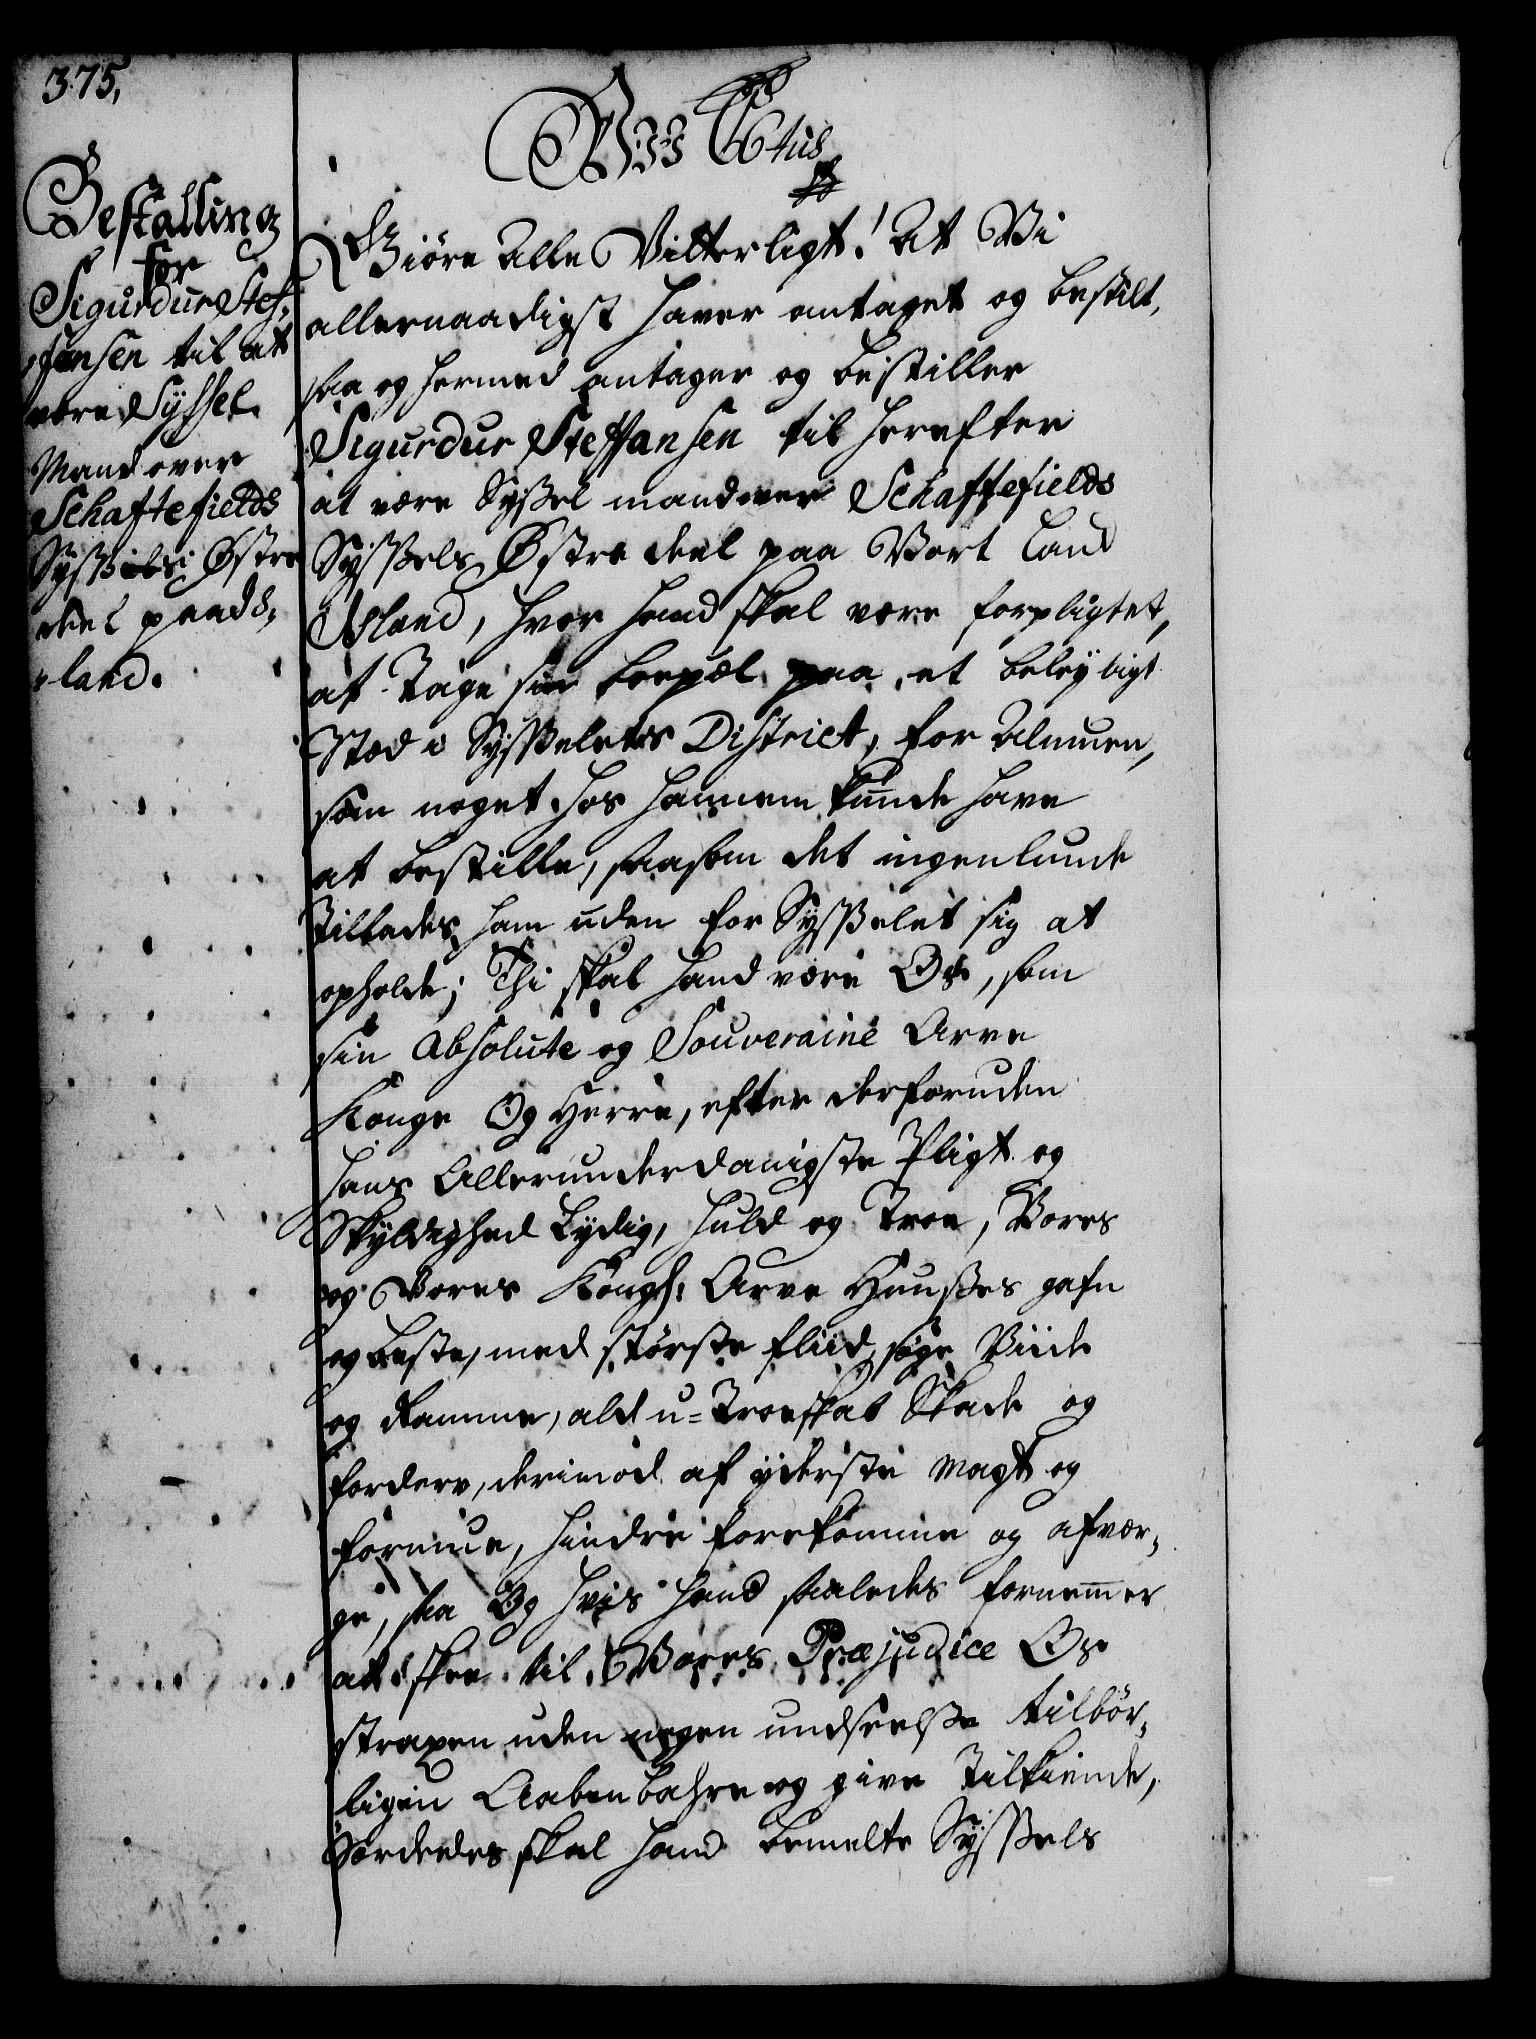 375,
Bestalling
for
Sigurdur Stef,
,fensen til at
være Syssel
Mand over
Schaftefields
Syssels Østre
deel paa Is,
,land.
Wii Ctus
Giøre Alle Vitterligt! At Vi
allernaadigst haver antaget og bestilt,
saa og hermed antager og bestiller
Sigurdur Steffansen til herefter
at være Syssel mand over Schaftefields
Syssels Østre deel paa Vort Land
Island, hvor hand skal være forpligtet,
at tage sin boepæl paa et beleyligt
Stæd i Sysselets District, for Almuen,
som noget hos hannem kunde have
at bestille, saasom det ingenlunde
Tillades ham uden for Sysselet sig at
opholde; Thi skal hand være Os, som
sin Absolute og Souveraine Arve
Konge Og Herre, efter derforuden
hans Allerunderdanigste Pligt og
Skyldighed Lydig, huld og Troe, Vores
og Vores Kongl: Arve Huusses gafn
og beste, med største fliid, søge Viide
og Ramme, ald u-Troeskab Skade og
forderv, derimod af yderste Magt og
formue, hindre forekomme og afvær,
ge, saa Og hvis hand saaledes fornemmer
at skee til Vores Præjudice Os
straxen uden nogen undseelsse tilbør,
ligen Aabenbahre og give Tilkiende,
Særdeeles skal hand bemelte Syssels